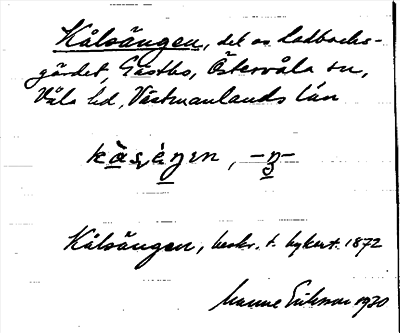 Kålsängen, del av Ladbacks-
gärdet, Gästbo, Östervåla sn,
Våla hd, Västmanlands län
Kålsängen, beskr. t. hykart. 1872
Manne Eriksson 1930